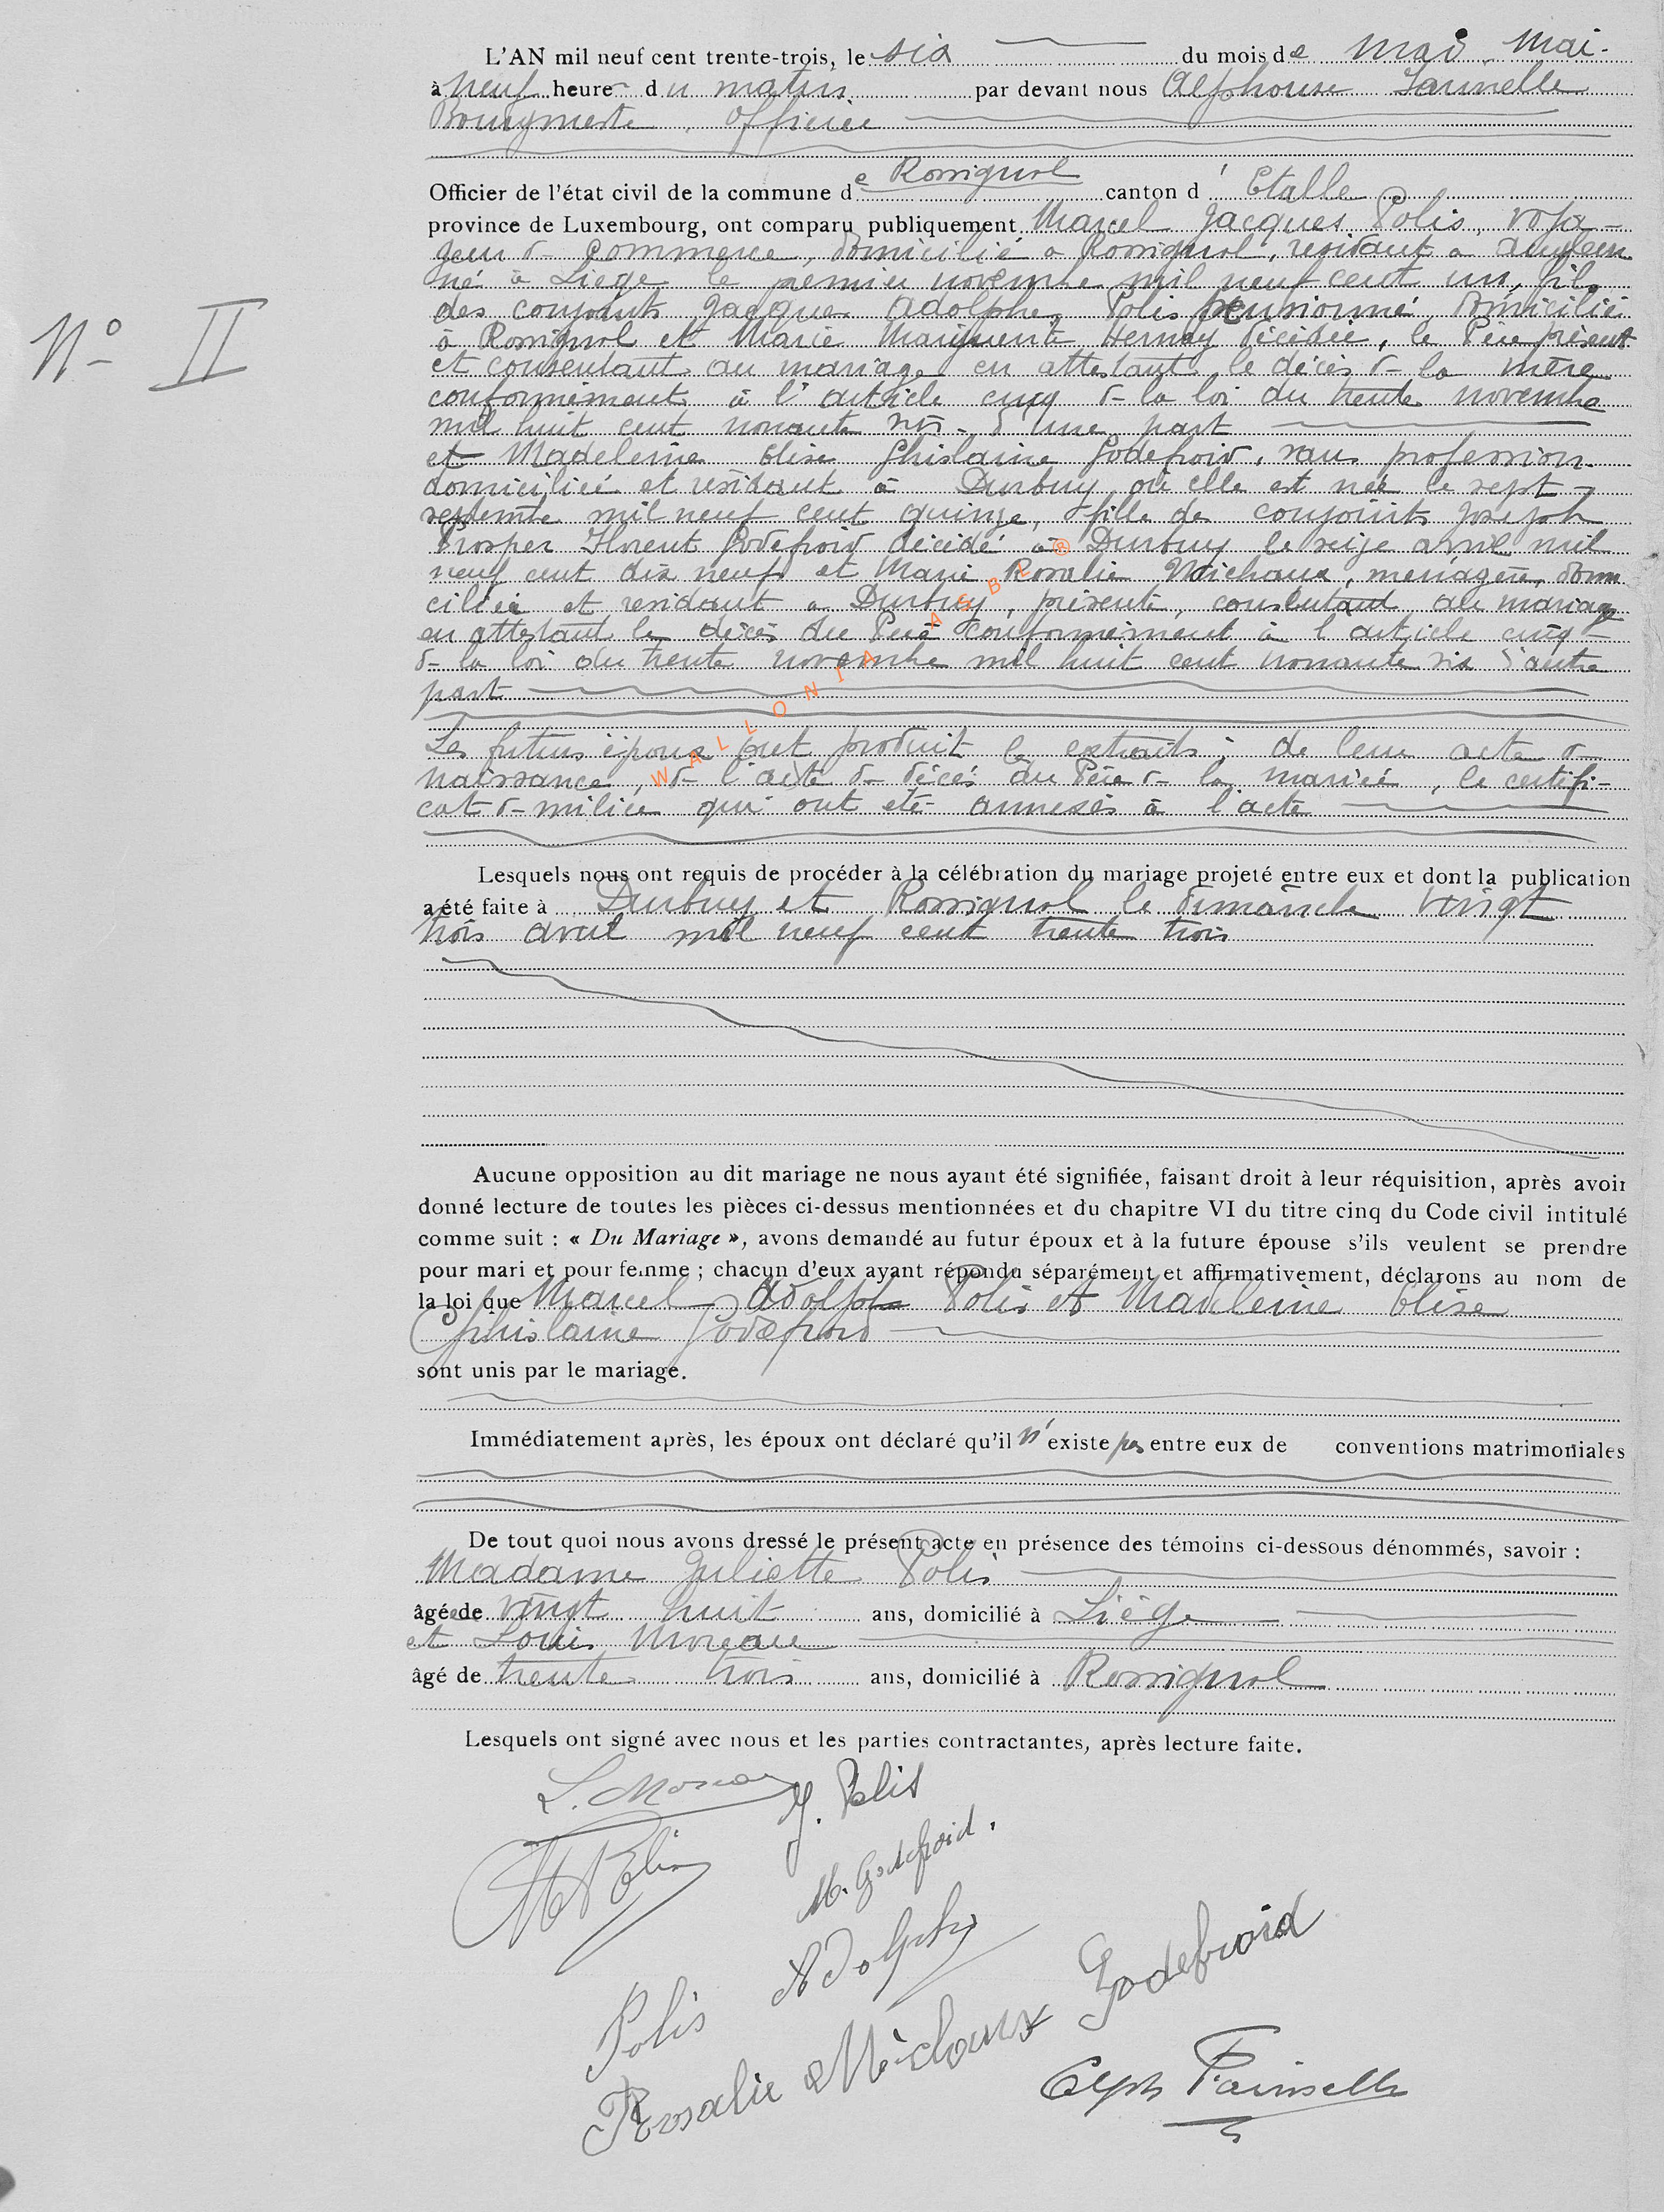 L'AN mil neuf cent trente-trois, le six du mois de mai Mai.
à neuf heure du matin. par devant nous Alphonse
Bourgmestre, Officier
Officier de l'état civil de la commune de Rossignol canton d' Etalle
province de Luxembourg, ont comparu publiquement Marcel Jacques Polis, voya-
geur de commerce, domicilié à Rossignol, résidant à
né à Liège le premier novembre mil neuf cent un, fils
des conjoints Jacques Adolphe Polis pensionné, domicilié
à Rossignol et Marie Marguerite Hernay décédée, le Père présent
et consentant au mariage en attestant le décès de la mère
conformément à l'article cinq de la loi du trente novembre
mil huit cent nonante six. d'une part
et Madeleine Elise Ghislaine Godefroid, sans profession.
domiciliée et résidant à Durbuy où elle est née le sept
septembre mil neuf cent quinze, fille des conjoints Joseph
Prosper Florent Godefroid décédé à Durbuy le seize avril mil
neuf cent dix neuf et Marie Rosalie Michaux, ménagère, domi
ciliée et résidant à Durbuy, présente, consentant au mariage
en attestant le décès du Père conformément à l'article cinq
de la loi du trente novembre mil huit cent nonante six d'autre
part
WALLONIA ASBL ®
Les futurs époux ont produit les extraits : de leur acte de
naissance, de l'acte de décès du Père de la mariée, le certifi-
cat de milice qui ont été annexés à l'acte
Lesquels nous ont requis de procéder à la célébration du mariage projeté entre eux et dont la publication
a été faite à Durbuy et Rossignol le dimanche vingt
trois avril mil neuf cent trente trois
Nº II
Aucune opposition au dit mariage ne nous ayant été signifiée, faisant droit à leur réquisition, après avoir
donné lecture de toutes les pièces ci-dessus mentionnées et du chapitre VI du titre cinq du Code civil intitulé
comme suit : « Du Mariage », avons demandé au futur époux et à la future épouse s'ils veulent se prendre
pour mari et pour femme ; chacun d'eux ayant répondu séparément et affirmativement, déclarons au nom de
la loi que Marcel Adolphe Polis et Madeleine Elise
Ghislaine Godefroid
sont unis par le mariage.
Immédiatement après, les époux ont déclaré qu'il n'existe pas entre eux de conventions matrimoniales
De tout quoi nous avons dressé le présent acte en présence des témoins ci-dessous dénommés, savoir :
Madame Juliette Polis
âgée de vingt huit ans, domicilié à Liège
et Louis Moreau
âgé de trente trois ans, domicilié à Rossignol
Lesquels ont signé avec nous et les parties contractantes, après lecture faite.
L. Moreau J. Polis
M Polis
M. Godefroid.
Polis Adolphe
Rosalie Michaux Godefroid
Alph